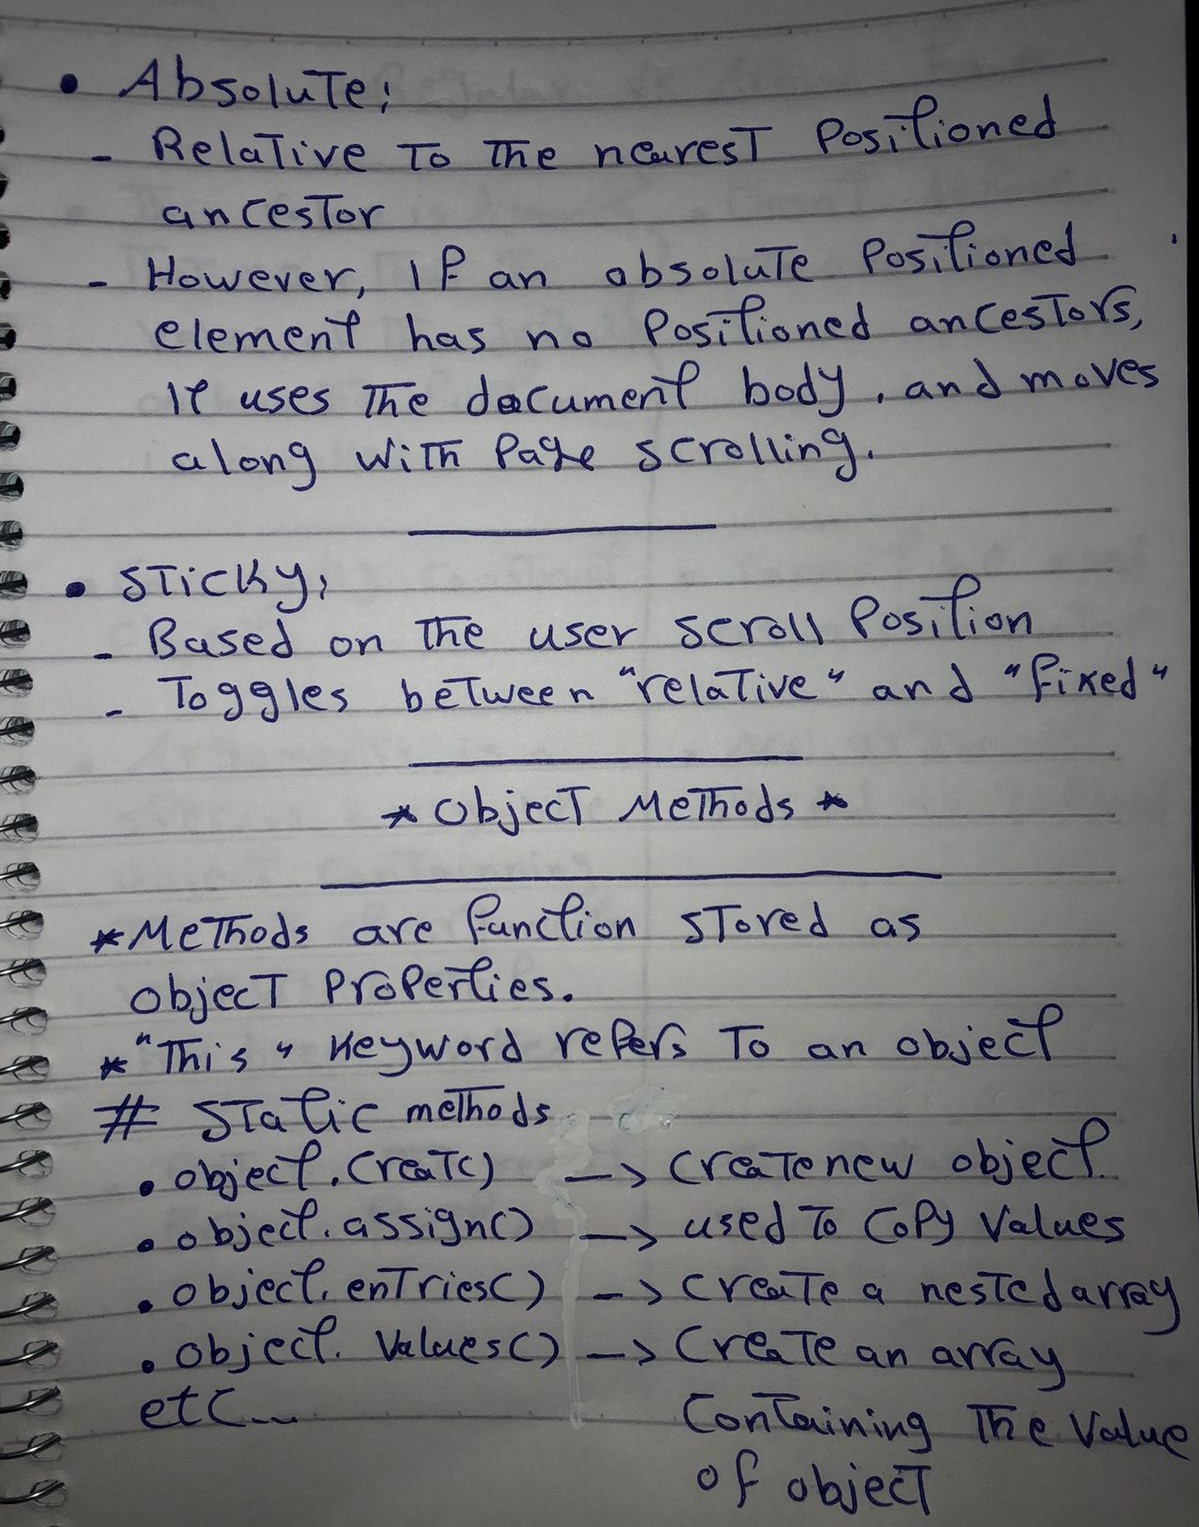 • Absolute:
- Relative to the nearest Positioned
ancestor
- However, if an absolute Positioned
element has no Positioned ancestors,
it uses the document body, and moves
along with Page scrolling.
• Sticky:
- Based on the user scroll Position
- Toggles between "relative" and "fixed"
* Object Methods *
* Methods are function stored as
object Properties.
* "This" keyword refers to an object
# Static methods
• object.Creat() -> Create new object
• object.assign() -> used to Copy Values
• object.entries() -> create a nested array
• object.Values() -> Create an array
etc... Containing the Value
of object